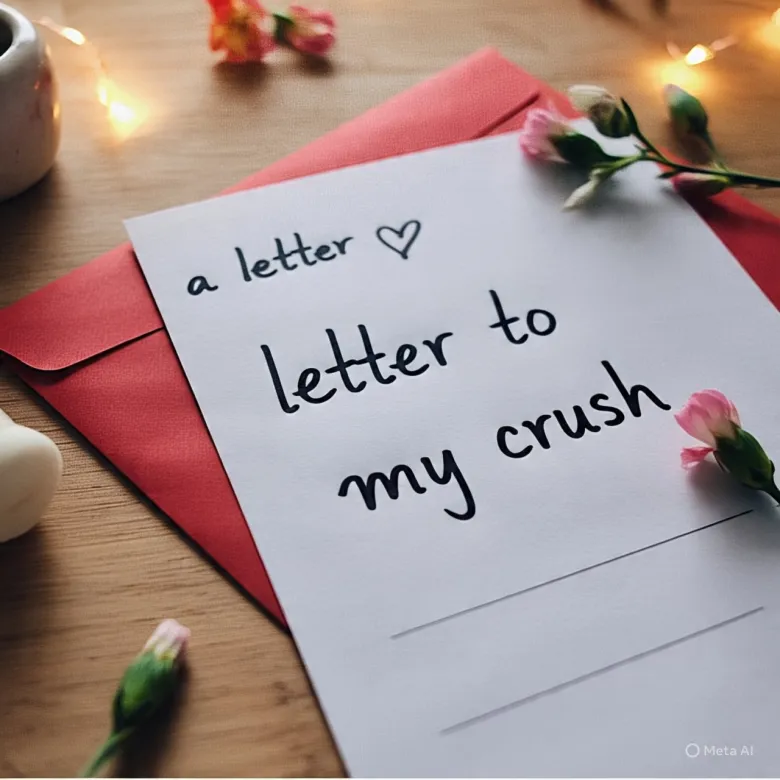 a letter ♡
letter to
my crush
Meta AI